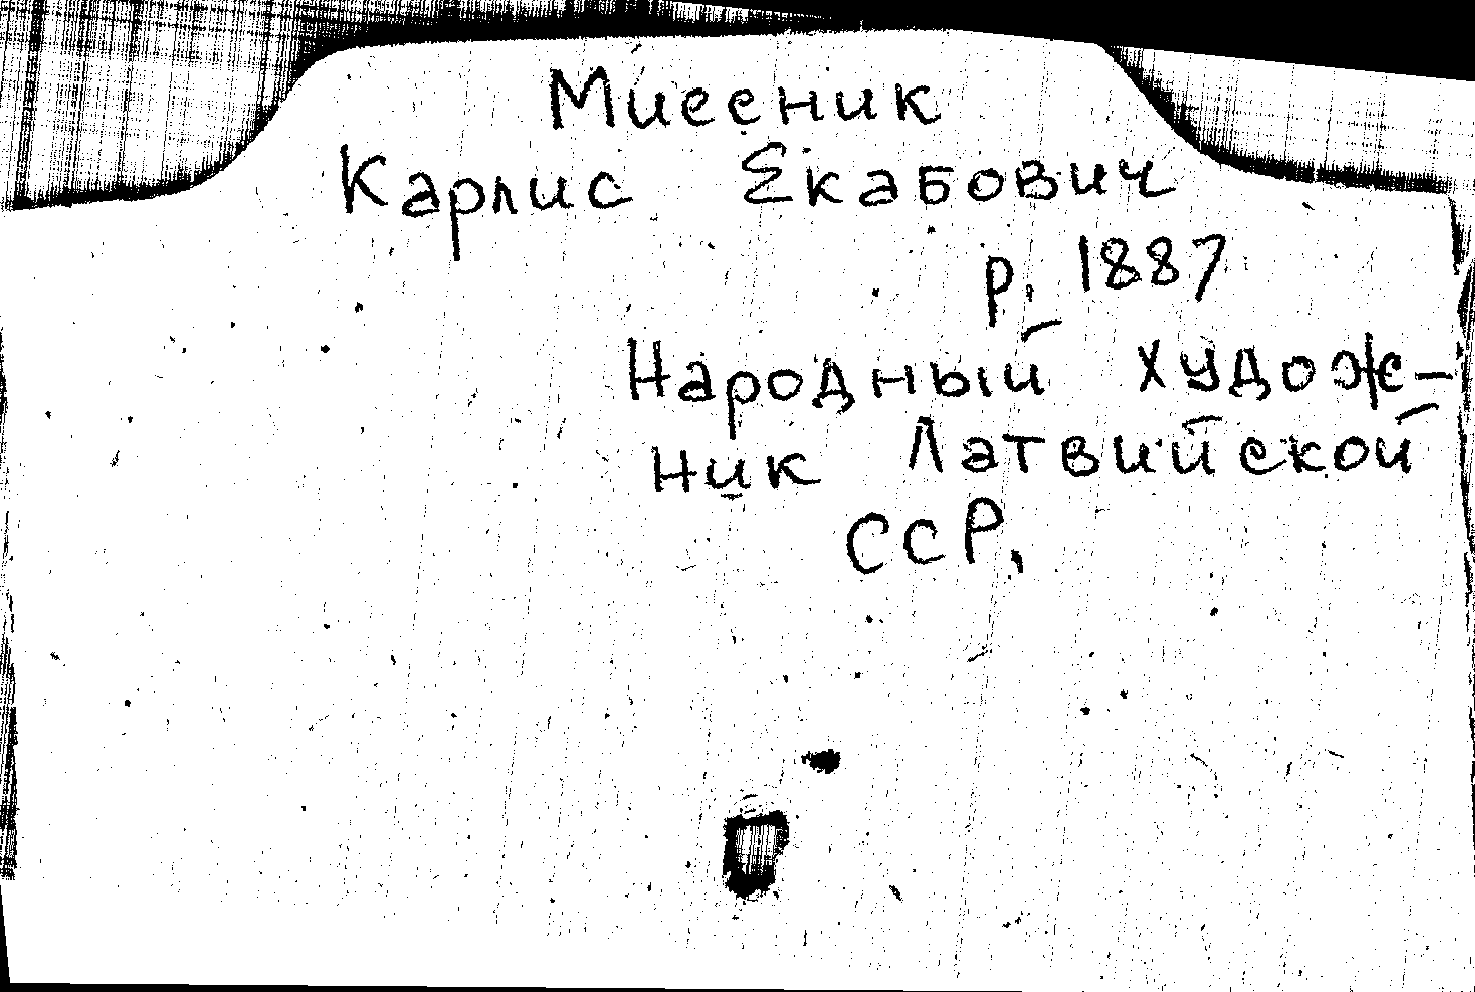 Миесник
Карлис Екабович
р. 1887
Народный худож-
ник Латвийской
ССР,